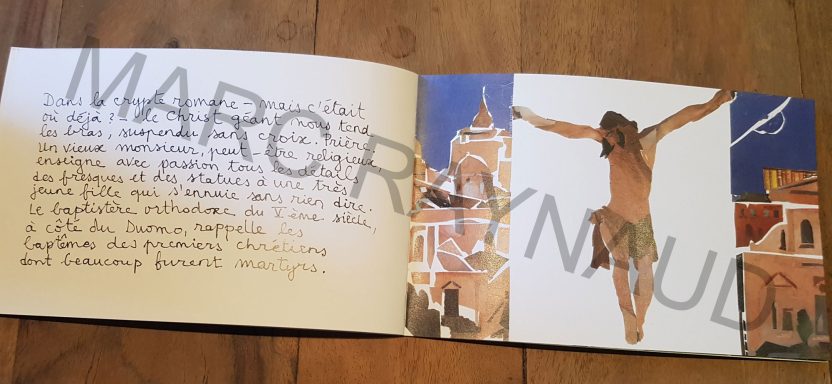 Dans la crypte romane - mais c'était
où déjà ? - le Christ géant nous tend
les bras, suspendu sans croix. Prière.
Un vieux monsieur, peut-être religieux,
enseigne avec passion tous les détails
des fresques et des statues à une très
jeune fille qui s'ennuie sans rien dire.
Le baptistère orthodoxe du Vème siècle,
à côté du Duomo, rappelle les
baptêmes des premiers chrétiens
dont beaucoup furent martyrs.
MARC RAYNAUD